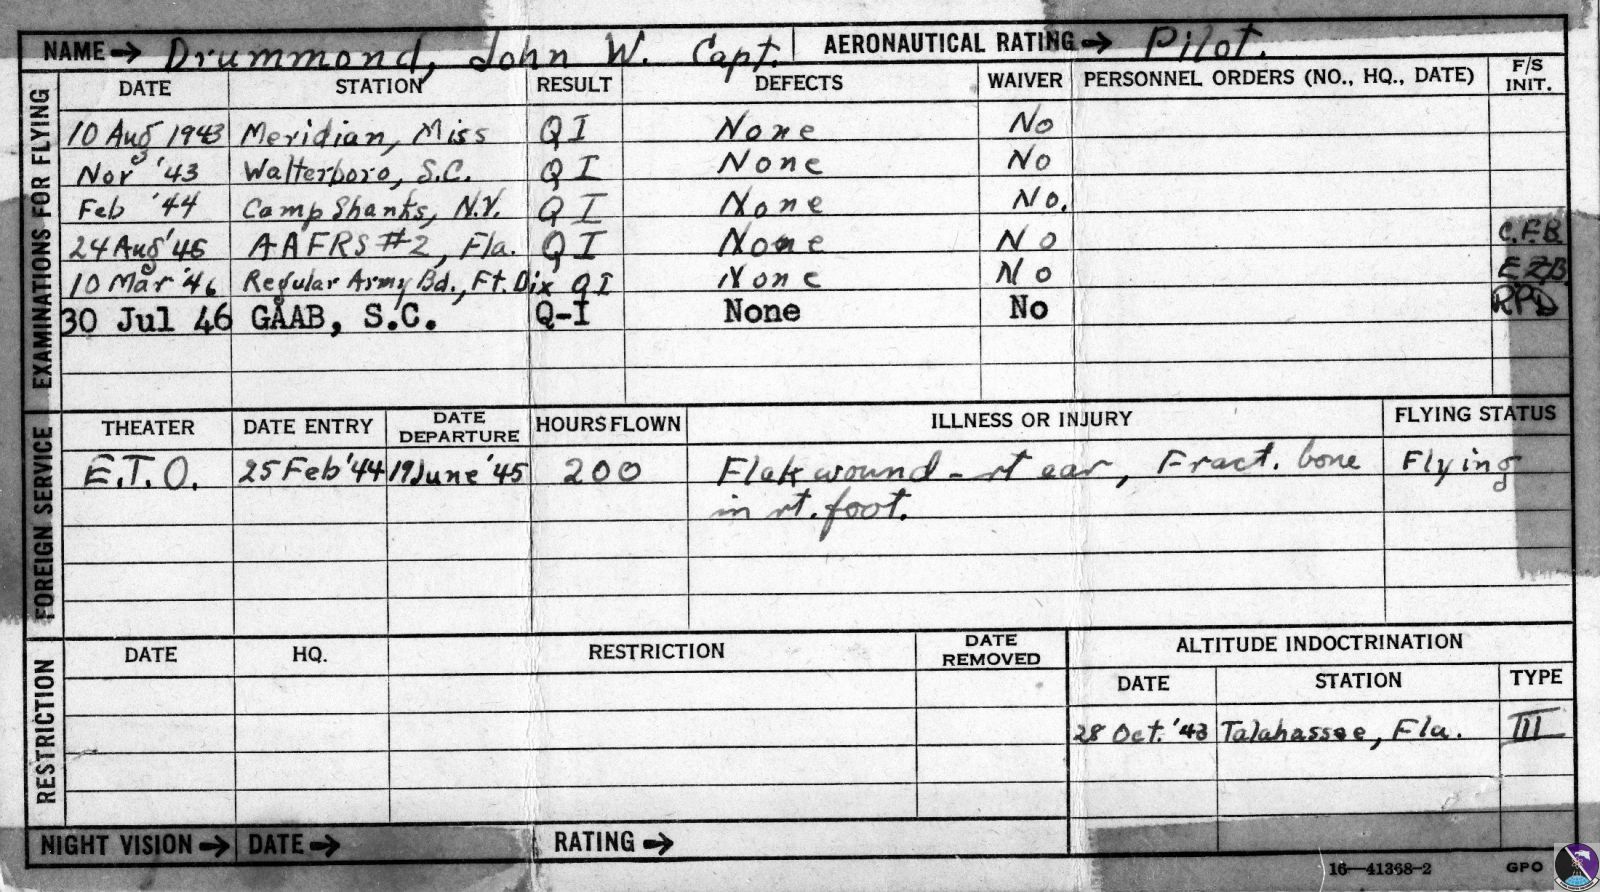 NAME → Drummond, John W. Capt. AERONAUTICAL RATING → Pilot.
EXAMINATIONS FOR FLYING
DATE STATION RESULT DEFECTS WAIVER PERSONNEL ORDERS (NO., HQ., DATE) F/S INIT.
10 Aug 1943 Meridian, Miss Q I None No
Nov '43 Walterboro, S.C. Q I None No
Feb '44 Camp Shanks, N.Y. Q I None No.
24 Aug '45 AAFRS #2, Fla. Q I None No C.F.B.
10 Mar '46 Regular Army Bd., Ft. Dix Q I None No EZB
30 Jul 46 GAAB, S.C. Q-I None No RPD
FOREIGN SERVICE
THEATER DATE ENTRY DATE DEPARTURE HOURS FLOWN ILLNESS OR INJURY FLYING STATUS
E.T.O. 25 Feb '44 19 June '45 200 Flak wound - rt ear, Fract. bone Flying
in rt. foot.
RESTRICTION
DATE HQ. RESTRICTION DATE REMOVED ALTITUDE INDOCTRINATION
DATE STATION TYPE
28 Oct. '43 Talahassee, Fla. III
NIGHT VISION → DATE → RATING →
16—41368-2 GPO